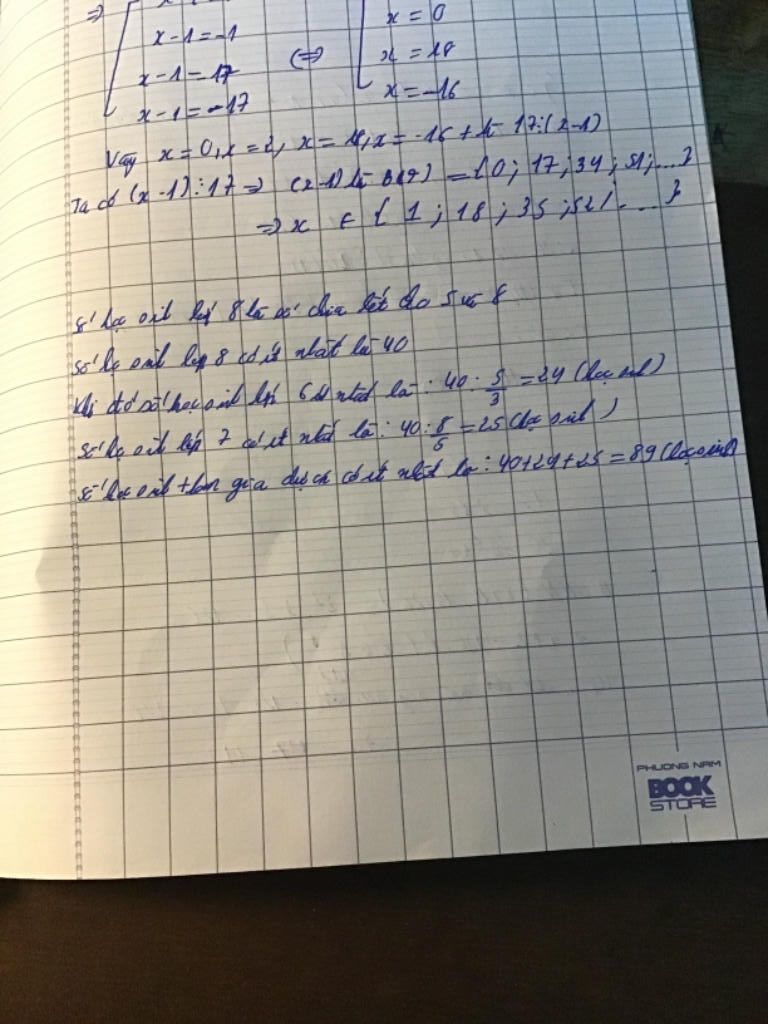 =>
x-1=-1
x-1=17
x-1=-17
(=)
x=0
x=18
x=-16
Vậy x=0, x=2, x=18, x=-16 thì 17⋮(x-1)
Ta có (x-1)⋮17 => (x-1) là B(17) = {0; 17; 34; 51; ...}
=> x ∈ { 1; 18; 35; 52; ... }
số học sinh lớp 8 là số chia hết cho 5 và 8
số học sinh lớp 8 có ít nhất là 40
Khi đó số học sinh lớp 6 ít nhất là: 40: 5/3 = 24 (học sinh)
số học sinh lớp 7 có ít nhất là: 40: 8/5 = 25 (học sinh)
số học sinh tham gia có ít nhất là: 40+24+25 = 89 (học sinh)
PHUONG NAM
BOOK
STORE